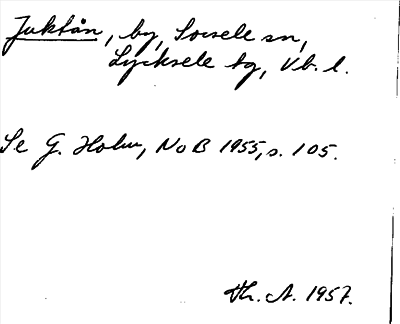 Juktån, by, Sorsele sn,
Lycksele tg, Vb. l.
Se G. Holm, NoB 1955, s. 105.
Th. A. 1957.